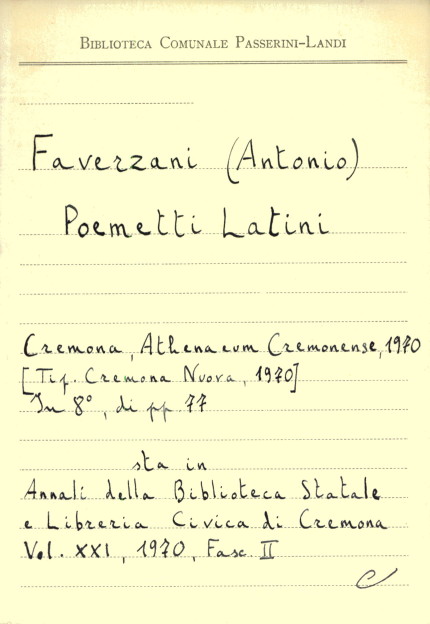 BIBLIOTECA COMUNALE PASSERINI-LANDI
Faverzani (Antonio)
Poemetti Latini
Cremona, Athenaeum Cremonense, 1970
[Tip. Cremona Nuova, 1970]
In 8°, di pp 77
sta in
Annali della Biblioteca Statale
e Libreria Civica di Cremona
Vol. XXI, 1970, Fasc II